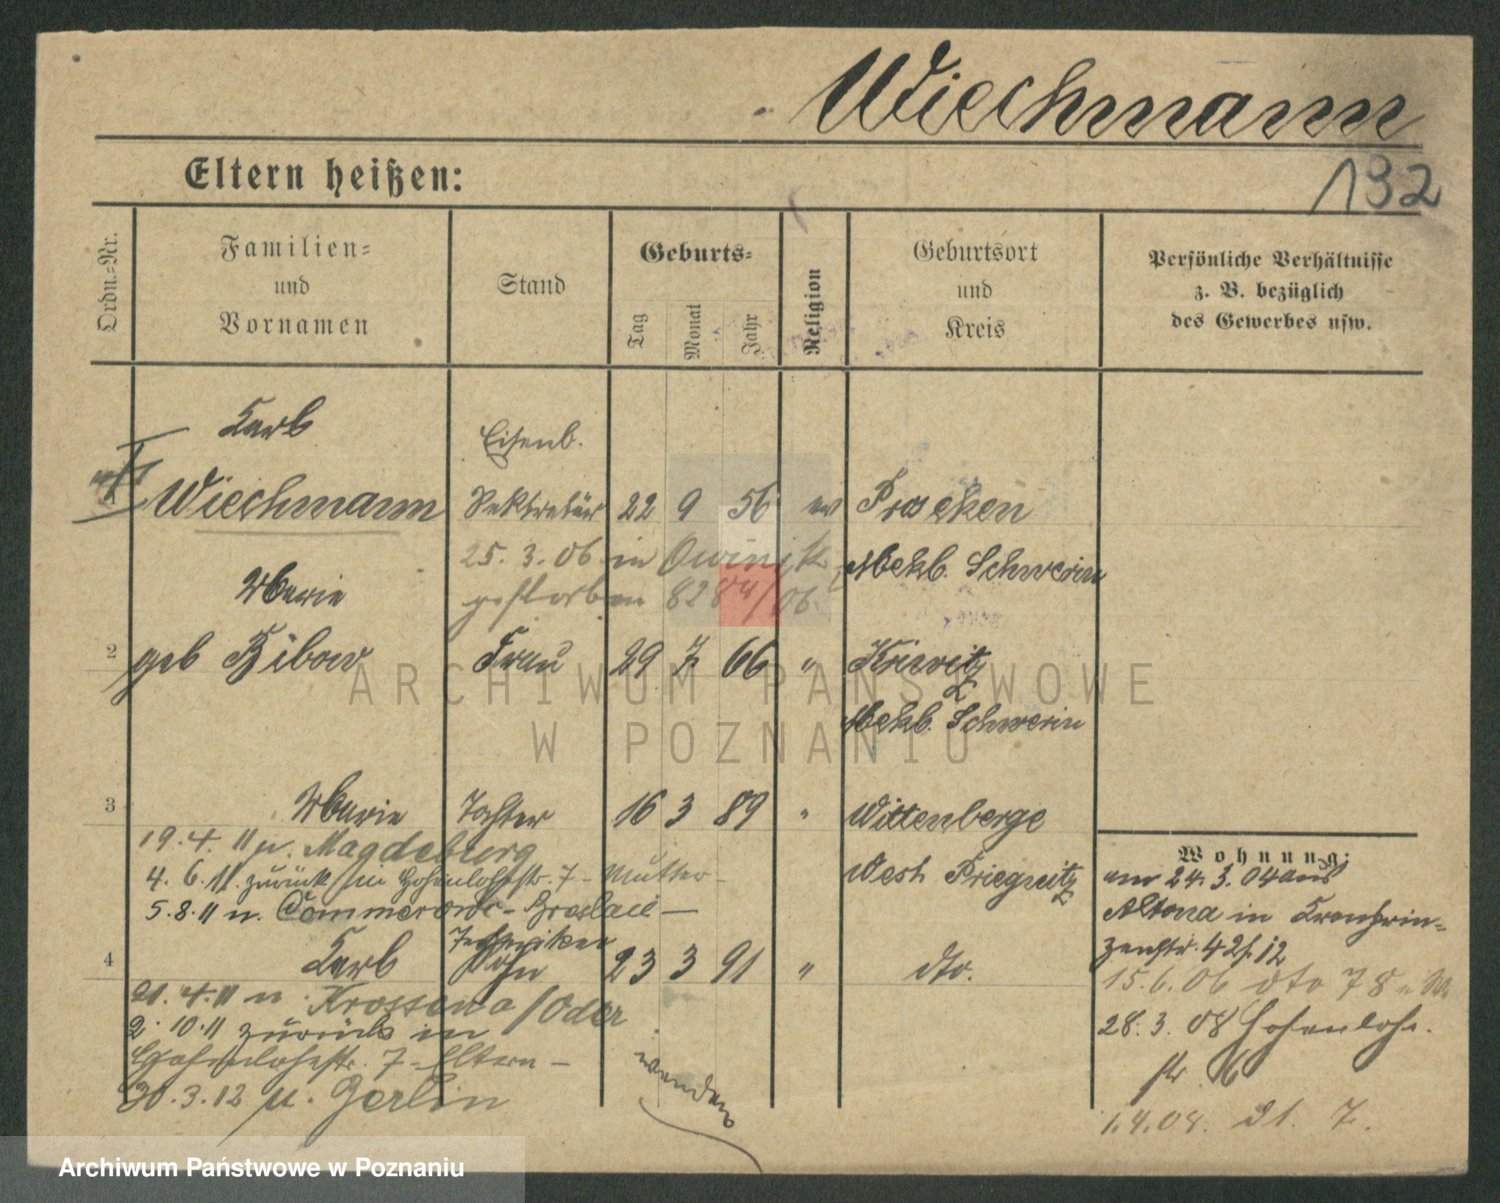 Wiechmann
132
Eltern heißen:
Ordn.-Nr.
Familien-
und
Vornamen
Stand
Geburts-
Tag
Monat
Jahr
Religion
Geburtsort
und
Kreis
Persönliche Verhältnisse
z. B. bezüglich
des Gewerbes usw.
Karl
Eisenb.
Wiechmann Sekretär 22 9 56 ev
Meckb. Schwerin
25. 3. 06 in
gestorben
Marie
2 geb Frau 29 7 66 "
Meckb. Schwerin
3 Marie Tochter 16 3 89 " Wittenberge
West Priegnitz
19. 4. 11 n. Magdeburg
4. 6. 11. zurück in Hohenlohestr. 7 - Mutter -
5. 8. 11 n.
4 Karl Techniker
Sohn 23 3 91 " dto.
21. 4. 11 n. /Oder
2. 10. 11 zurück in
Hohenlohestr. 7 - Eltern -
30. 3. 12 n. Berlin
wenden
Wohnung:
am 24. 3. 04 aus
Altona in Kronprin-
zenstr. 42
15. 6. 06 dto 78
28. 3. 08 Hohenlohe-
str
1. 4. 08. 7.
ARCHIWUM PAŃSTWOWE
W POZNANIU
Archiwum Państwowe w Poznaniu